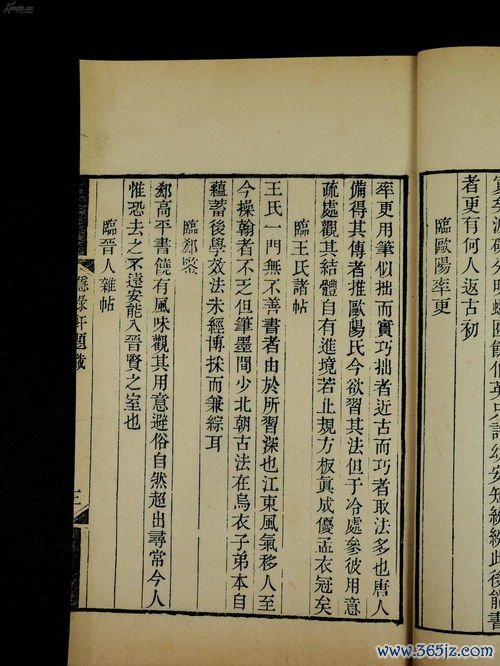 者更有何人返古初
臨歐陽率更
率更用筆似拙而實巧拙者近古而巧者取法多也唐人
備得其傳者推歐陽氏今欲習其法但于冷處參彼用意
疏處觀其結體自有進境若止規方板真成優孟衣冠矣
臨王氏諸帖
王氏一門無不善書者由於所習深也江東風氣移人至
今操翰者不乏但筆墨間少北朝古法在烏衣子弟本自
蘊蓄後學效法未經博採而兼綜耳
臨郗鑒
郗高平書饒有風味觀其用意避俗自然超出尋常今人
惟恐去之不遠安能入晉賢之室也
臨晉人雜帖
隱綠軒題識
三
www.365jz.com